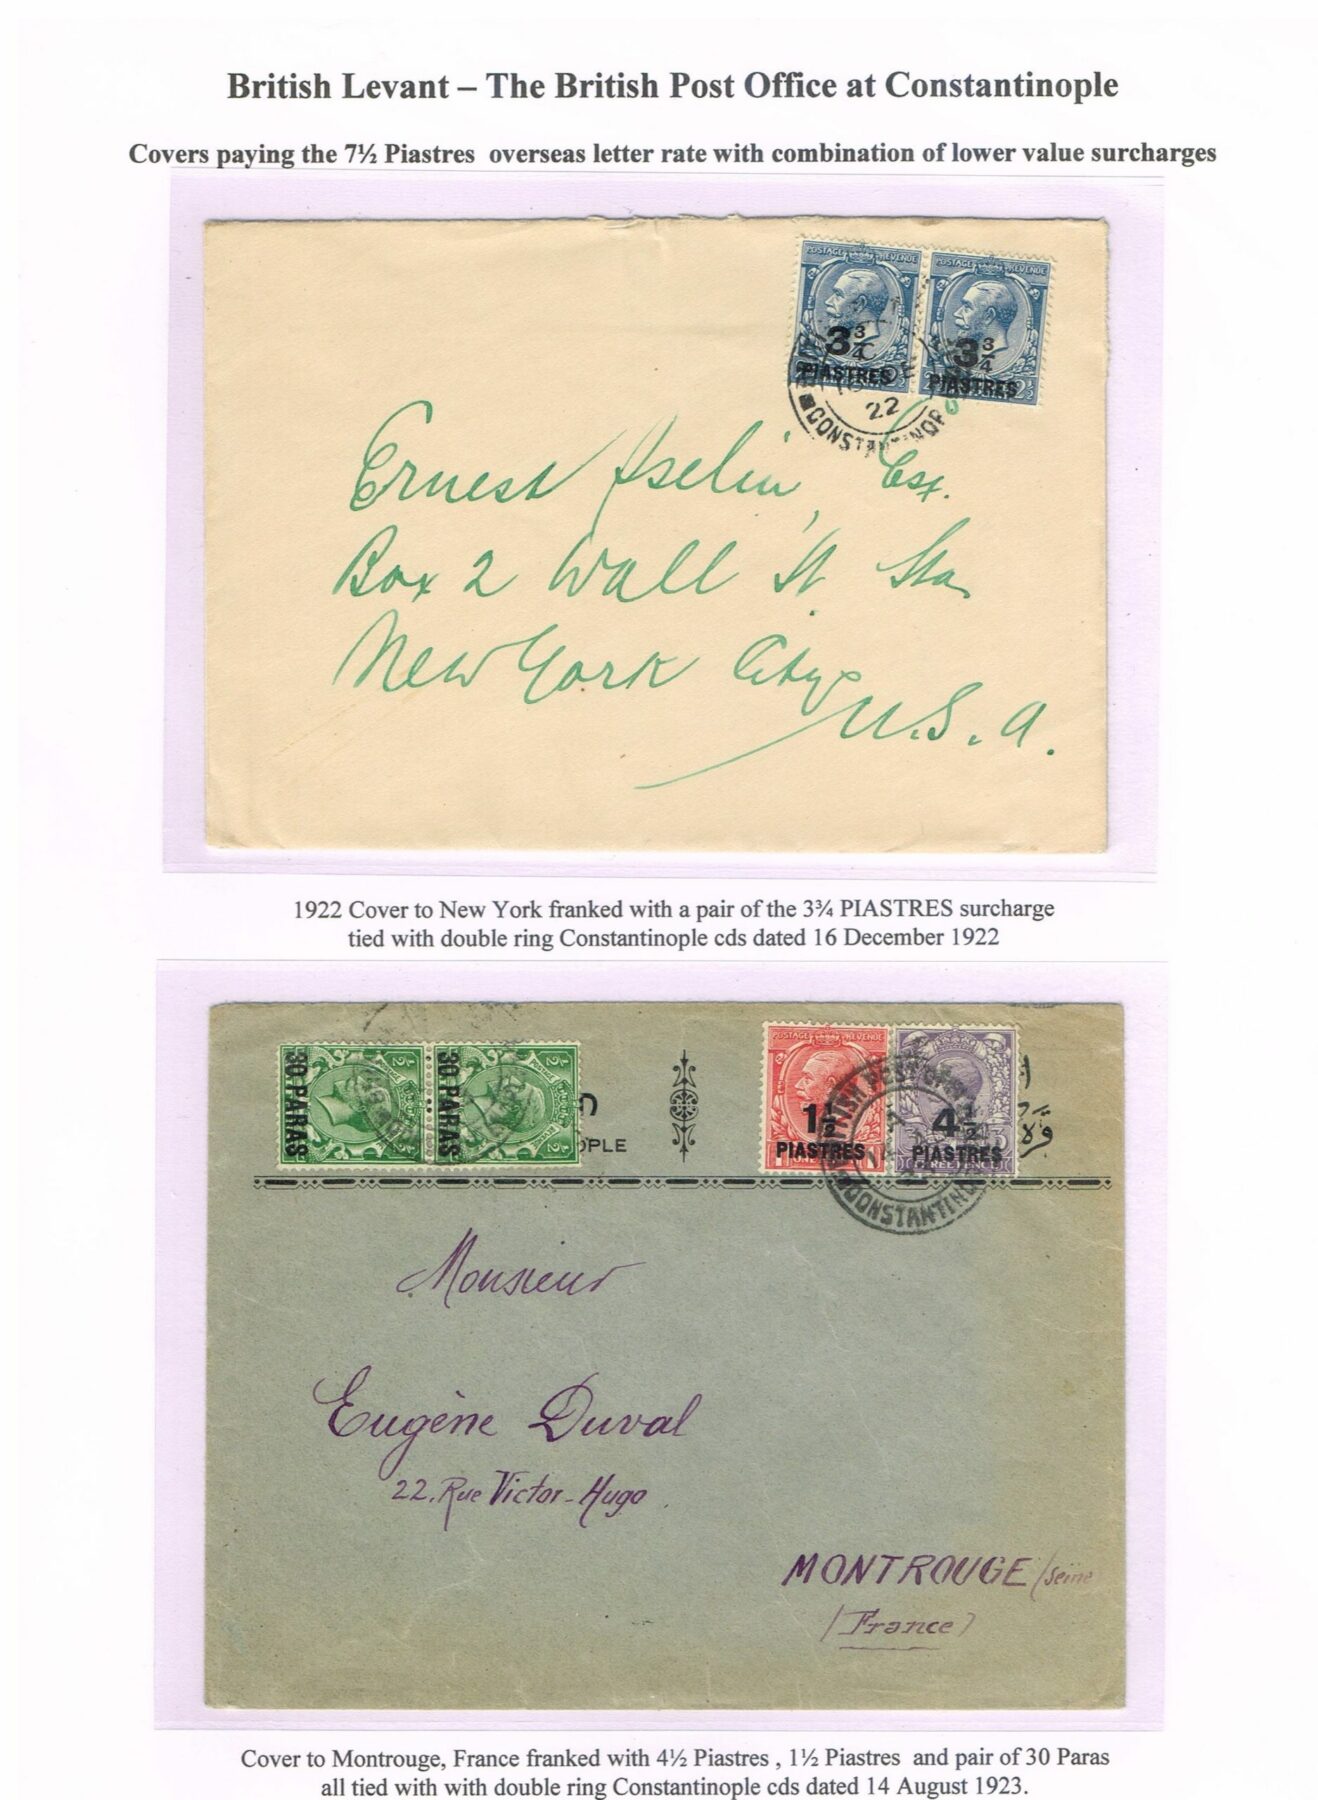 British Levant – The British Post Office at Constantinople
Covers paying the 7½ Piastres overseas letter rate with combination of lower value surcharges
POSTAGE REVENUE POSTAGE REVENUE
3¾ 3¾
PIASTRES PIASTRES 2½
22
CONSTANTINOP
Ernest Iselin, Esq.
Box 2 Wall St Sta
New York City
U.S.A.
1922 Cover to New York franked with a pair of the 3¾ PIASTRES surcharge
tied with double ring Constantinople cds dated 16 December 1922
30 PARAS 30 PARAS
½ ½
POSTAGE REVENUE
OPLE
1½ 4½
PIASTRES PIASTRES
BRITISH POST OFFICE
CONSTANTINO
Monsieur
Eugène Duval
22, Rue Victor-Hugo.
MONTROUGE (Seine
(France)
Cover to Montrouge, France franked with 4½ Piastres , 1½ Piastres and pair of 30 Paras
all tied with with double ring Constantinople cds dated 14 August 1923.